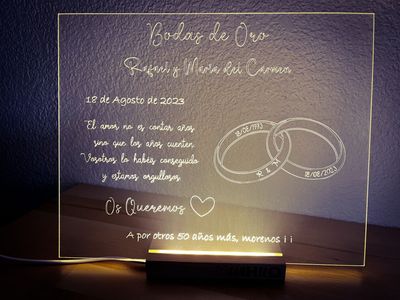 Bodas de Oro
Rafael y María del Carmen
18 de Agosto de 2023
El amor no es contar años
sino que los años cuenten.
Vosotros lo habéis conseguido
y estamos orgullosos.
Os Queremos
A por otros 50 años más, morenos ¡ ¡
18/08/1973
R & M
18/08/2023